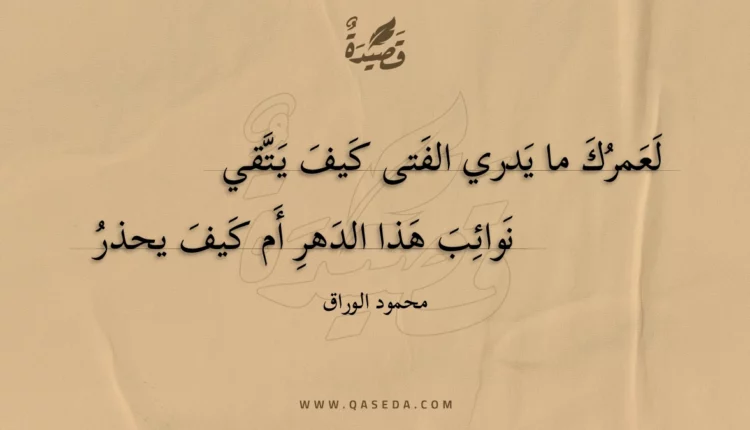 قَصِيدَةٌ
لَعَمرُكَ ما يَدري الفَتى كَيفَ يَتَّقي
نَوائِبَ هَذا الدَهرِ أَم كَيفَ يحذرُ
محمود الوراق
WWW.QASEDA.COM